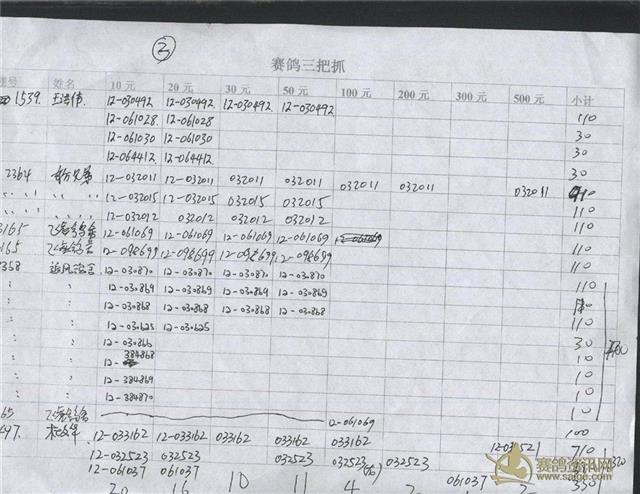 ③
赛鸽三把抓
号 姓名 10 元 20 元 30 元 50 元 100 元 200 元 300 元 500 元 小计
1539. 王浩伟. 12-030492 12-030492 12-030492 12-030492 110
12-061028 12-061028 30
12-061030 12-061030 30
12-064412 12-064412 30
2364 12-032011 12-032011 032011 032011 032011 032011 032011 910
12-032015 12-032015 032015 032015 110
12-032012 032012 032012 032012 110
3165 12-061069 12-061069 12-061069 12-061069 110
165 12-098699 12-098699 12-098699 12-098699 110
2358 12-030870 12-030870 12-030870 12-030870 110
12-030869 12-030869 12-030869 12-030869
12-030868 12-030868 12-030868 12-030868 110
12-030625 12-030625 30
12-030866 10
12-384868 10
12-384869 10
12-384870 10
65 12-061069 100
497. 12-033162 12-033162 033162 033162 033162
12-032523 032523 032523 032523 032523
12-061037 061037 061037
20 16 10 11 4 2
赛鸽资讯网
www.saige.com